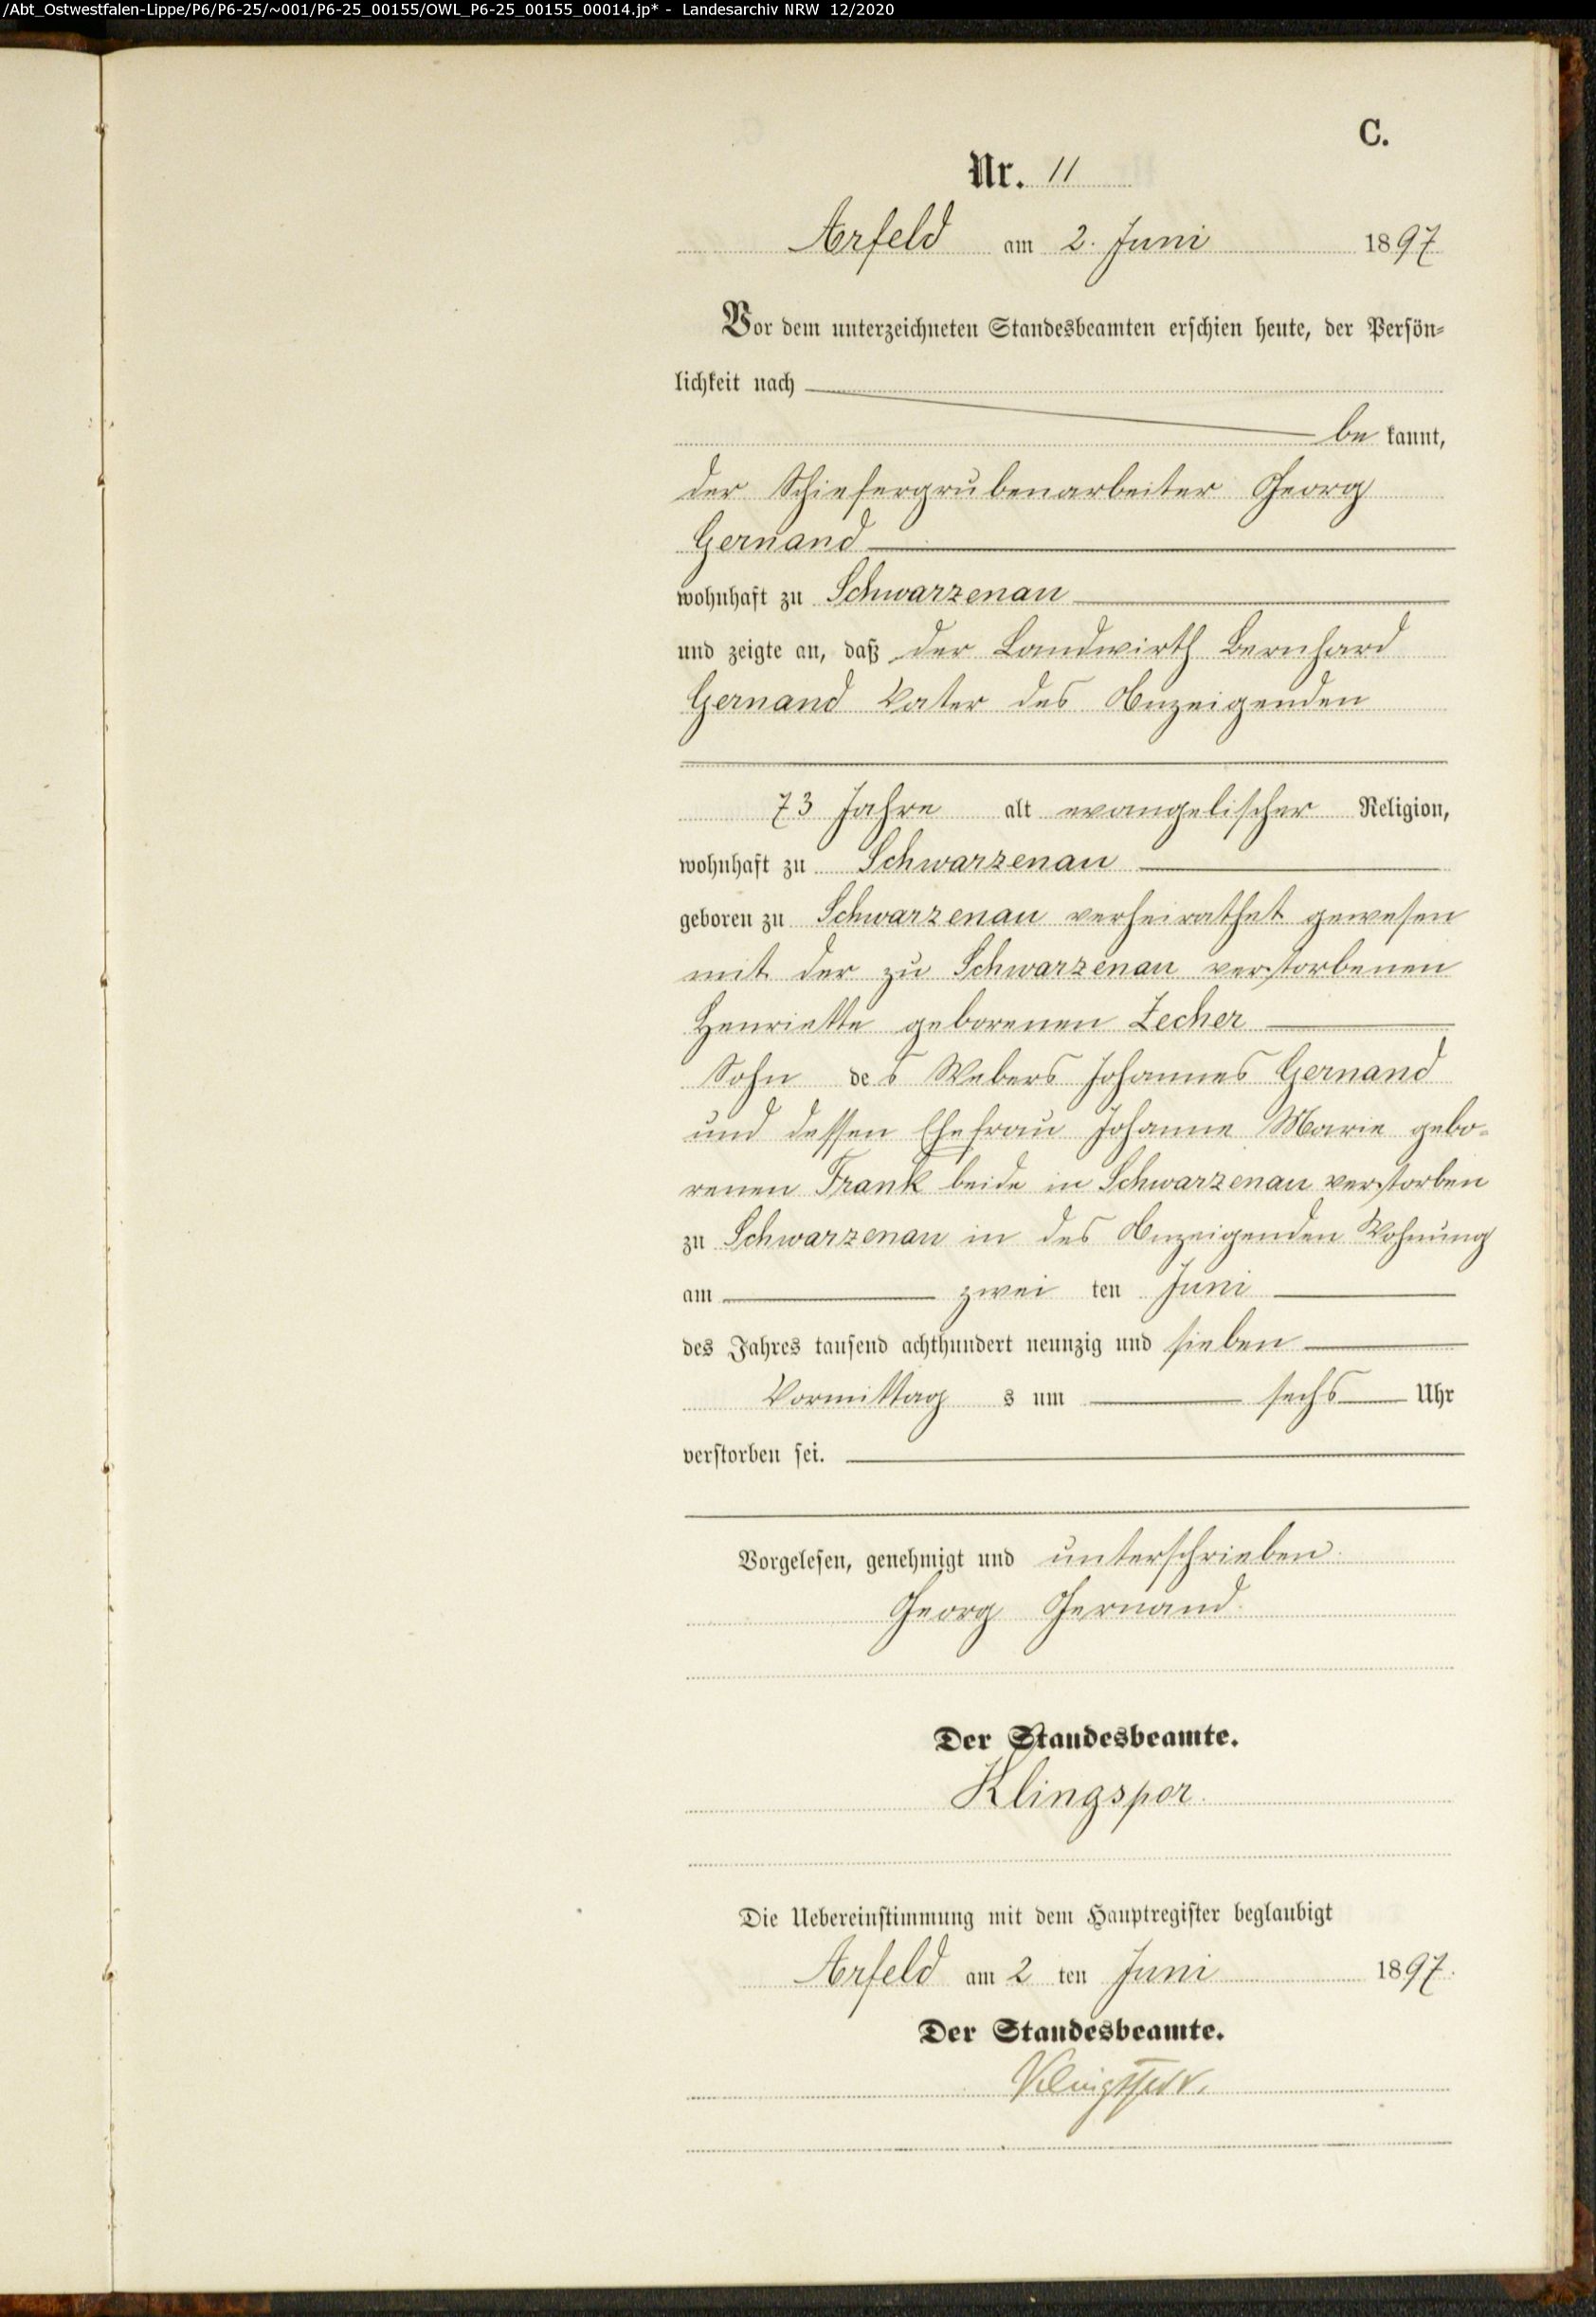 /Abt_Ostwestfalen-Lippe/P6/P6-25/~001/P6-25_00155/OWL_P6-25_00155_00014.jp* - Landesarchiv NRW 12/2020
C.
Nr. 11
Arfeld am 2. Juni 1897
Vor dem unterzeichneten Standesbeamten erschien heute, der Persön-
lichkeit nach
be kannt,
der Schiefergrubenarbeiter Georg
Gernand
wohnhaft zu Schwarzenau
und zeigte an, daß der Landwirth Bernhard
Gernand Vater des Anzeigenden
73 Jahre alt evangelischer Religion,
wohnhaft zu Schwarzenau
geboren zu Schwarzenau verheirathet gewesen
mit der zu Schwarzenau verstorbenen
Henriette geborenen Zecher
Sohn des Webers Johannes Gernand
und dessen Ehefrau Johanne Marie gebo-
renen Frank beide in Schwarzenau verstorben
zu Schwarzenau in des Anzeigenden Wohnung
am zwei ten Juni
des Jahres tausend achthundert neunzig und sieben
Vormittag s um sechs Uhr
verstorben sei.
Vorgelesen, genehmigt und unterschrieben.
Georg Gernand.
Der Standesbeamte.
Klingspor.
Die Uebereinstimmung mit dem Hauptregister beglaubigt
Arfeld am 2 ten Juni 1897.
Der Standesbeamte.
Klingspor.